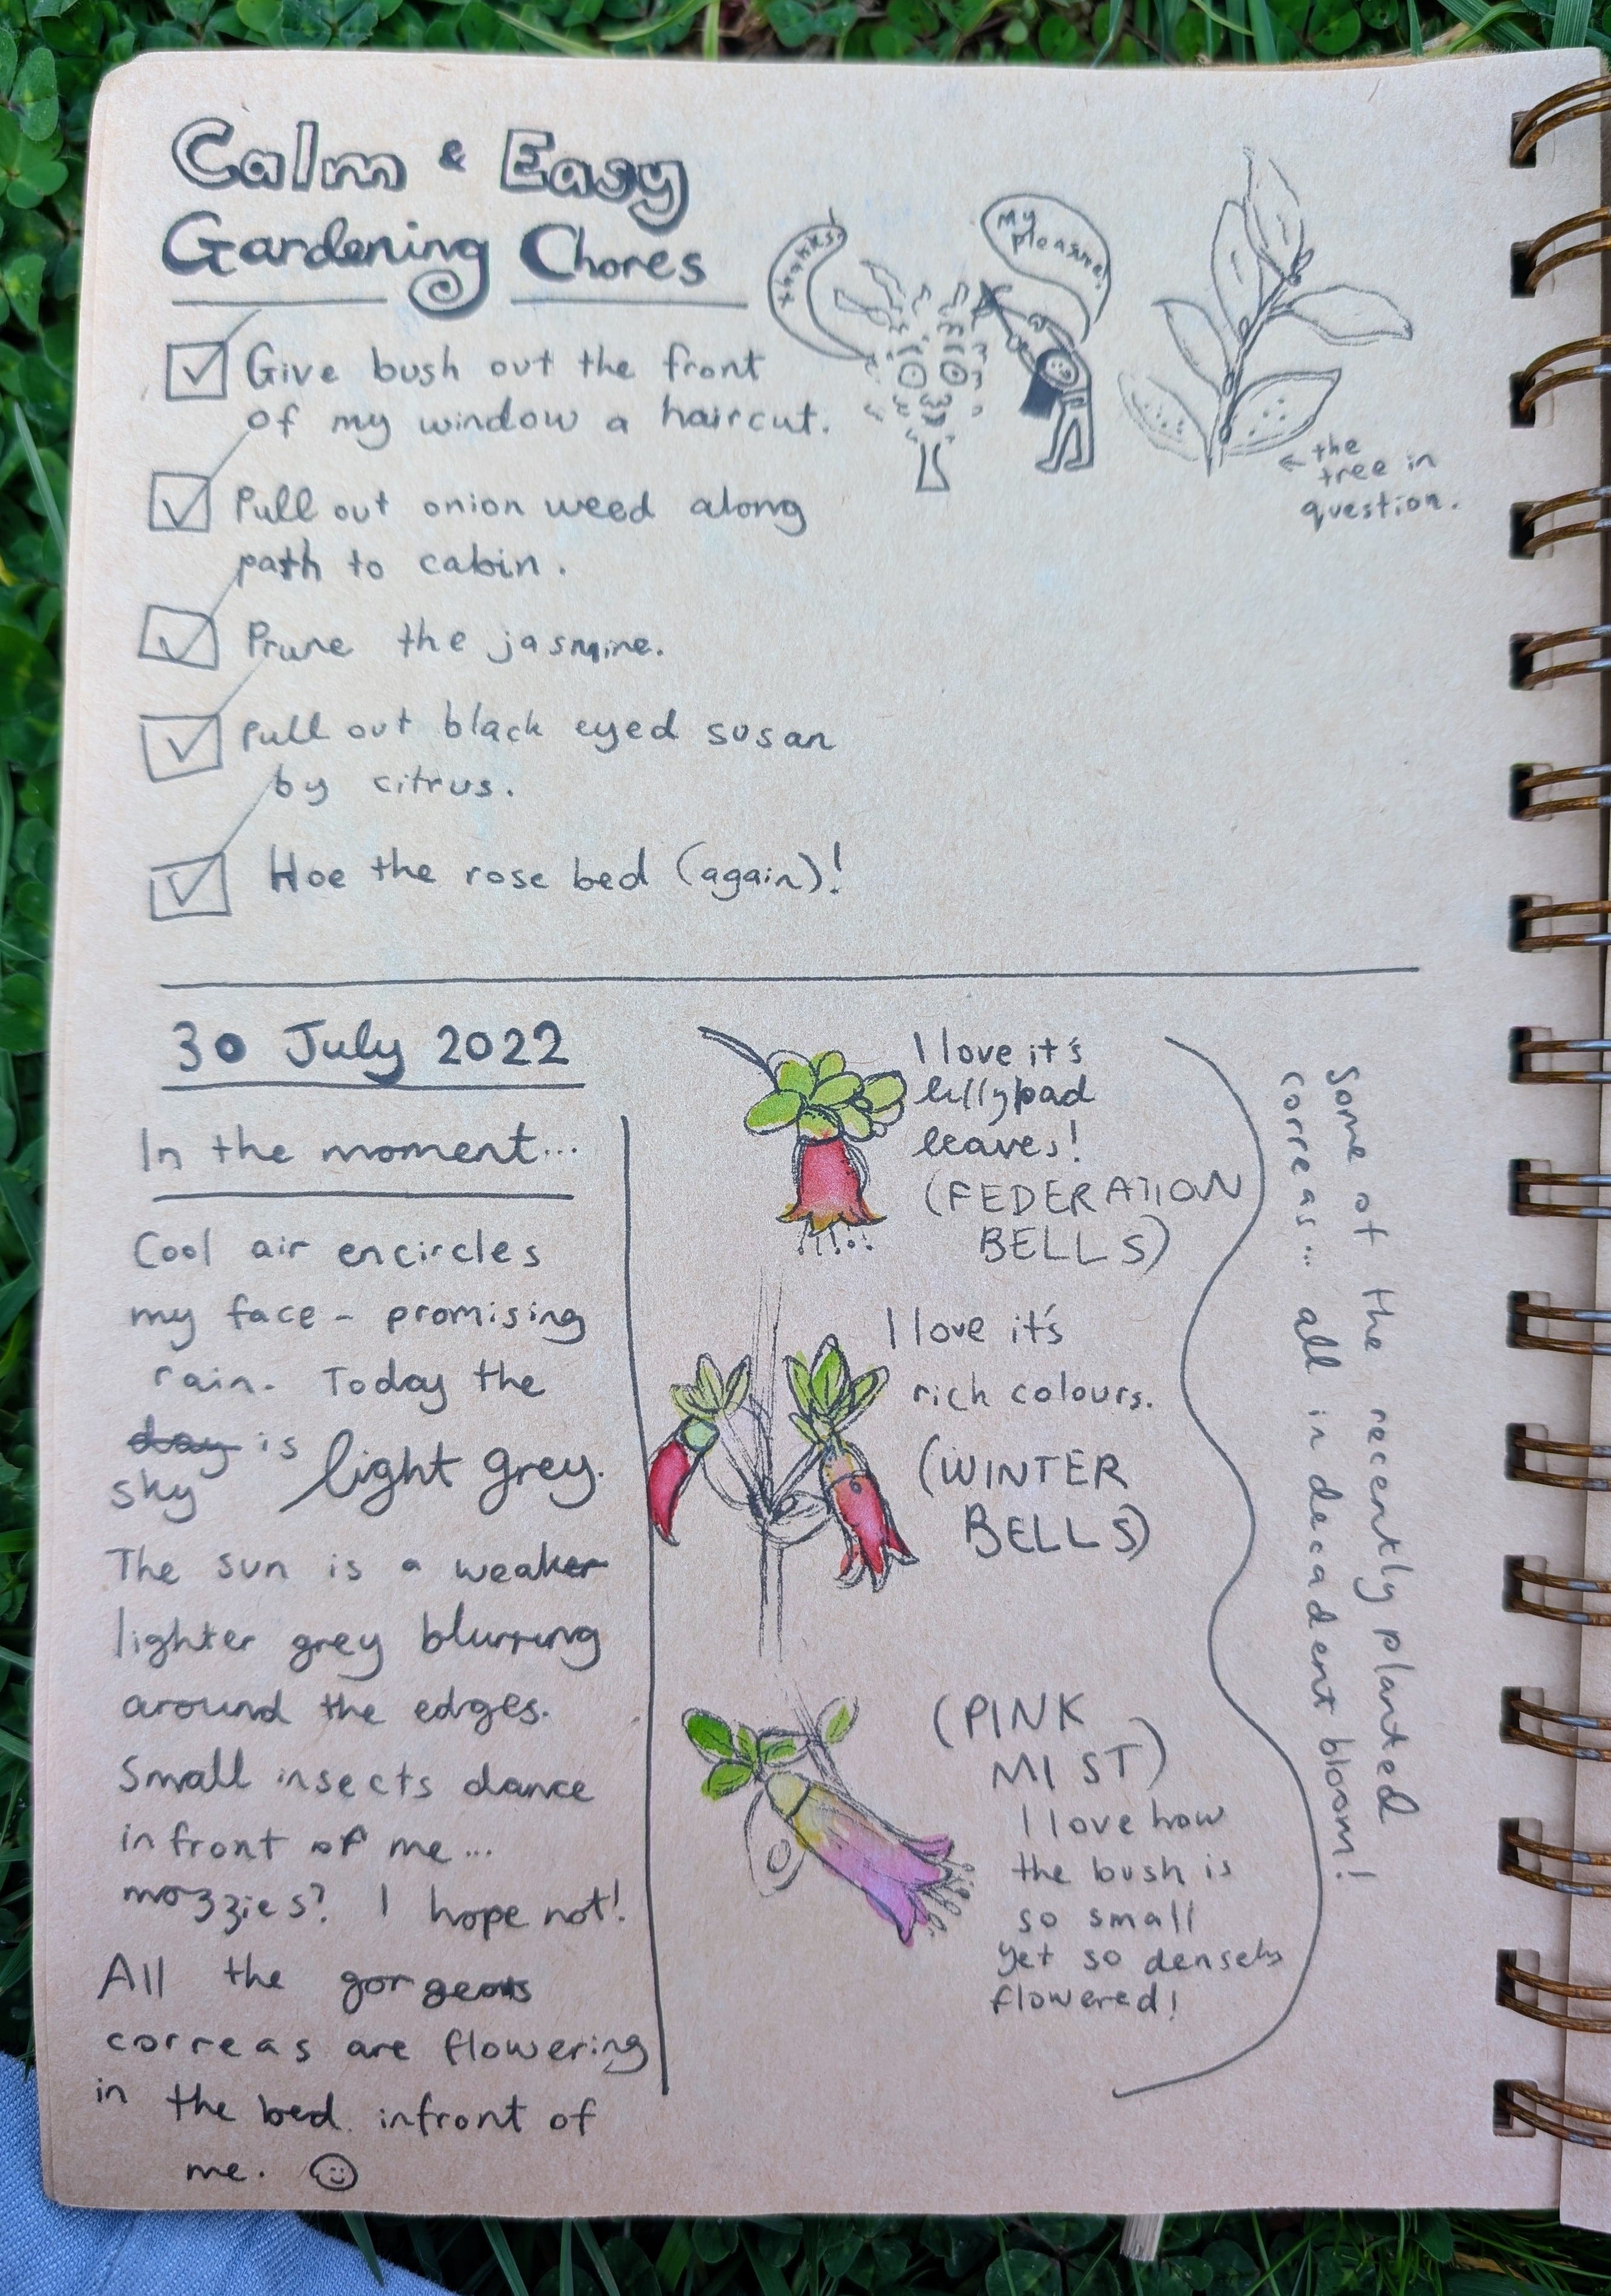 Calm & Easy
Gardening Chores
Give bush out the front
of my window a haircut.
thanks!
My
pleasure!
← the
tree in
question.
Pull out onion weed along
path to cabin.
Prune the jasmine.
Pull out black eyed susan
by citrus.
Hoe the rose bed (again)!
30 July 2022
In the moment...
Cool air encircles
my face - promising
rain. Today the
day is
sky light grey.
The sun is a weaker
lighter grey blurring
around the edges.
Small insects dance
infront of me...
mozzies? I hope not!
All the gorgeous
correas are flowering
in the bed infront of
me.
I love it's
lillypad
leaves!
(FEDERATION
BELLS)
I love it's
rich colours.
(WINTER
BELLS)
(PINK
MIST)
I love how
the bush is
so small
yet so densely
flowered!
Some of the recently planted
correas... all in decadent bloom!